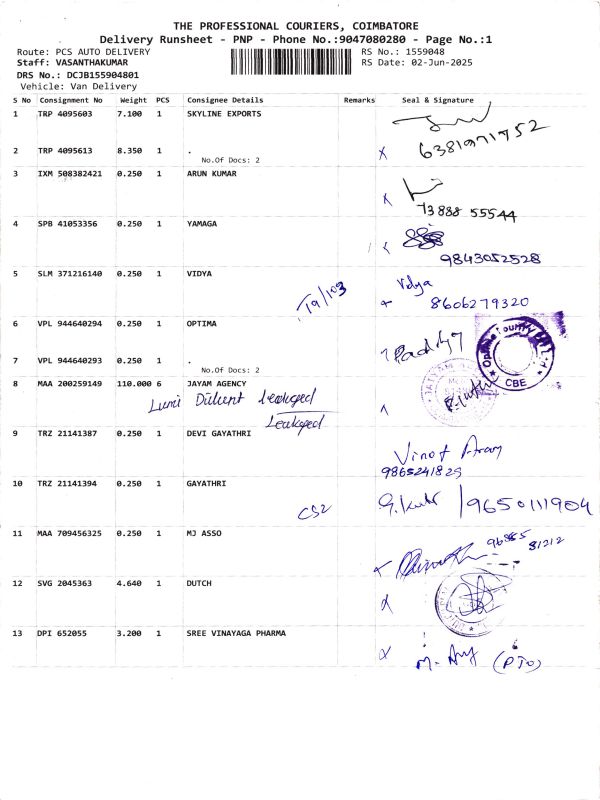 THE PROFESSIONAL COURIERS, COIMBATORE
Delivery Runsheet - PNP - Phone No.:9047080280 - Page No.:1
Route: PCS AUTO DELIVERY RS No.: 1559048
Staff: VASANTHAKUMAR RS Date: 02-Jun-2025
DRS No.: DCJB155904801
Vehicle: Van Delivery
S No Consignment No Weight PCS Consignee Details Remarks Seal & Signature
1 TRP 4095603 7.100 1 SKYLINE EXPORTS
2 TRP 4095613 8.350 1 . 6381971752
No.Of Docs: 2
3 IXM 508382421 0.250 1 ARUN KUMAR
73888 55544
4 SPB 41053356 0.250 1 YAMAGA
9843052528
5 SLM 371216140 0.250 1 VIDYA Vidya
T9/103 8606279320
6 VPL 944640294 0.250 1 OPTIMA
7 VPL 944640293 0.250 1 .
No.Of Docs: 2
CBE
8 MAA 200259149 110.000 6 JAYAM AGENCY
Leakaged
Leakaged
9 TRZ 21141387 0.250 1 DEVI GAYATHRI
Vinot
9865241829
10 TRZ 21141394 0.250 1 GAYATHRI
CS2 9650111904
11 MAA 709456325 0.250 1 MJ ASSO
96885 81212
12 SVG 2045363 4.640 1 DUTCH
13 DPI 652055 3.200 1 SREE VINAYAGA PHARMA
(PTO)